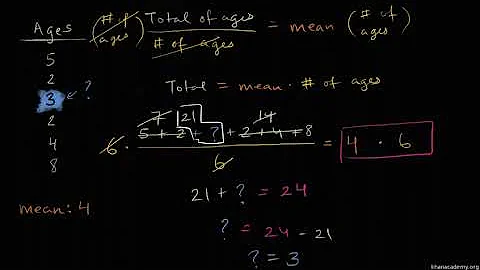 Ages
5
2
3 ← ?
2
4
8
mean: 4
(# of ages) Total of ages / # of ages = mean (# of ages)
Total = mean · # of ages
7 21 14
6 · 5 + 2 + ? + 2 + 4 + 8 / 6 = 4 · 6
21 + ? = 24
? = 24 - 21
? = 3
khanacademy.org